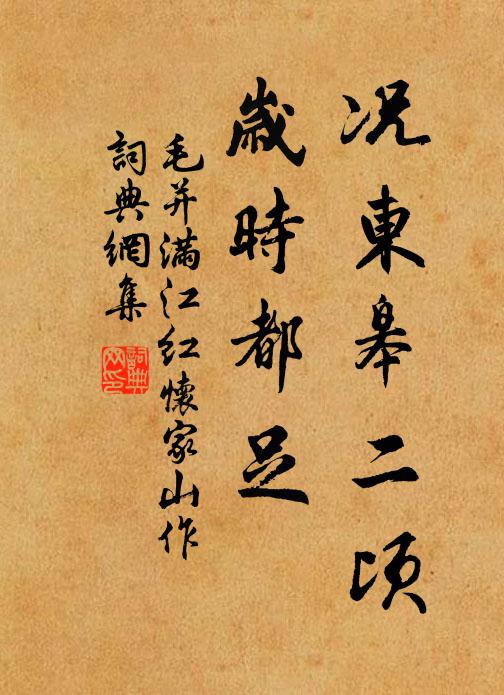 况東皋二頃
歲時都足
毛并滿江紅懷家山作
詞典網集
詞典網印